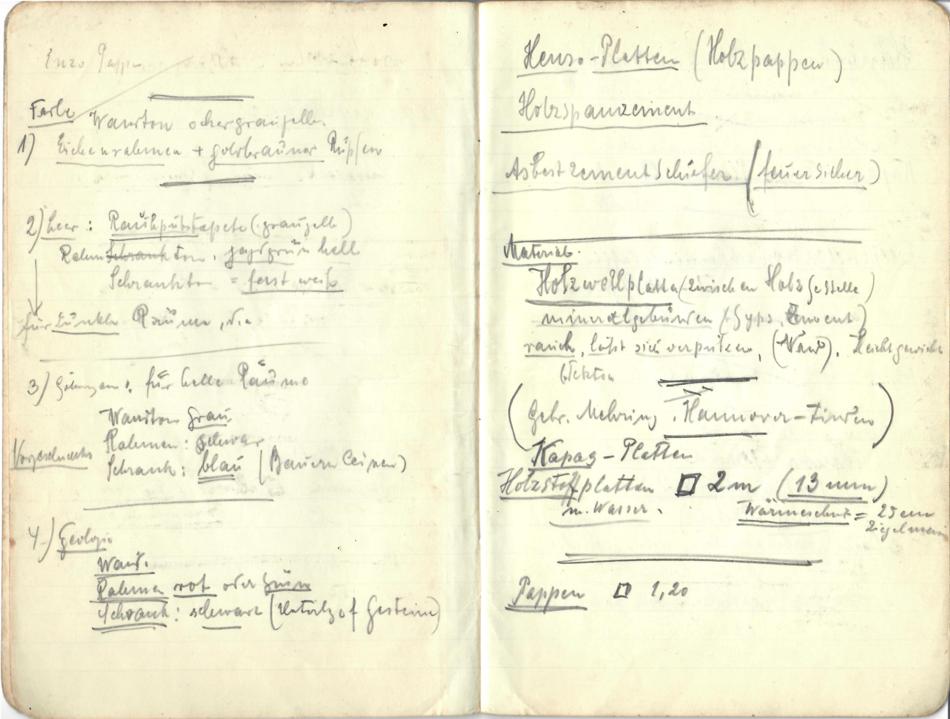 Enzo Pappen
Farbe
Wandton ockergraugelb.
1) Eichenrahmen + goldbrauner Rupfen
2) Leer: Rauhputztapete (graugelb)
Rahmen Schrankton, jagdgrün hell
Schrankton = fast weiß
für dunkle Räume, die
3) für helle Räume
Wandton grau
Rahmen: schwarz
Vorgeschichte Schrank: blau (Bauern
4.) Geologie
Wand.
Rahmen rot oder grün
Schrank: schwarz (Gestein)
Henso-Platten (Holzpappen)
Holzspanzement
Asbestzementschiefer (feuersicher)
Material.
Holzwollplatten (zwischen Holzgestelle)
mineralgebunden (Gyps, Zement)
rauh, läßt sich verputzen, (Wand). Leichtgewicht
(Gebr. Mehring. Hannover-Linden)
Kapag-Platten
Holzstoffplatten □ 2 m (13 mm)
m. Wasser. Wärmeschutz = 25 cm
Ziegelmauer
Pappen □ 1,20